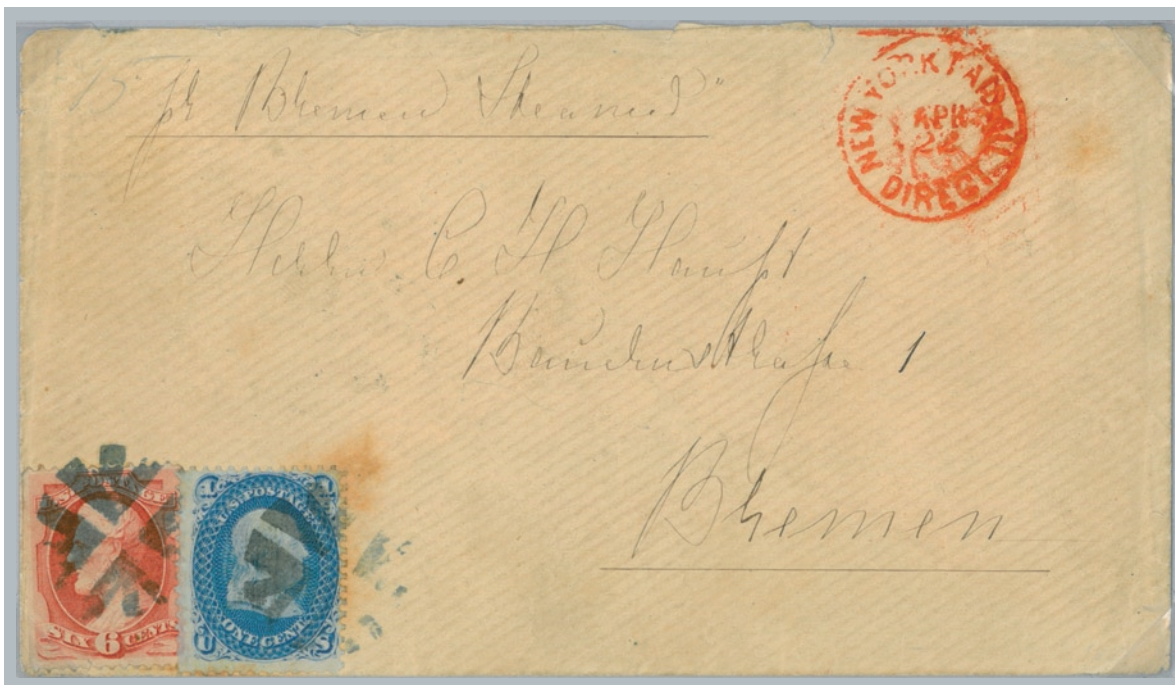 15
pr Bremen Steamer"
NEW YORK PAID ALL
APR
22
DIRECT
Herrn C H Haupt
1
Bremen
U.S. POSTAGE
SIX 6 CENTS
1 U.S. POSTAGE 1
ONE CENT
U S